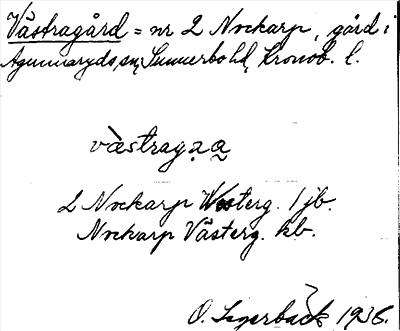 Västragård = nr 2 Nockarp, gård i
Agunnaryds sn, Sunnerbo hd, Kronob. l.
västragaa
2 Nockarp Westerg. 1 jb.
Nockarp Västerg. kb.
O. Lagerbäck 1936.